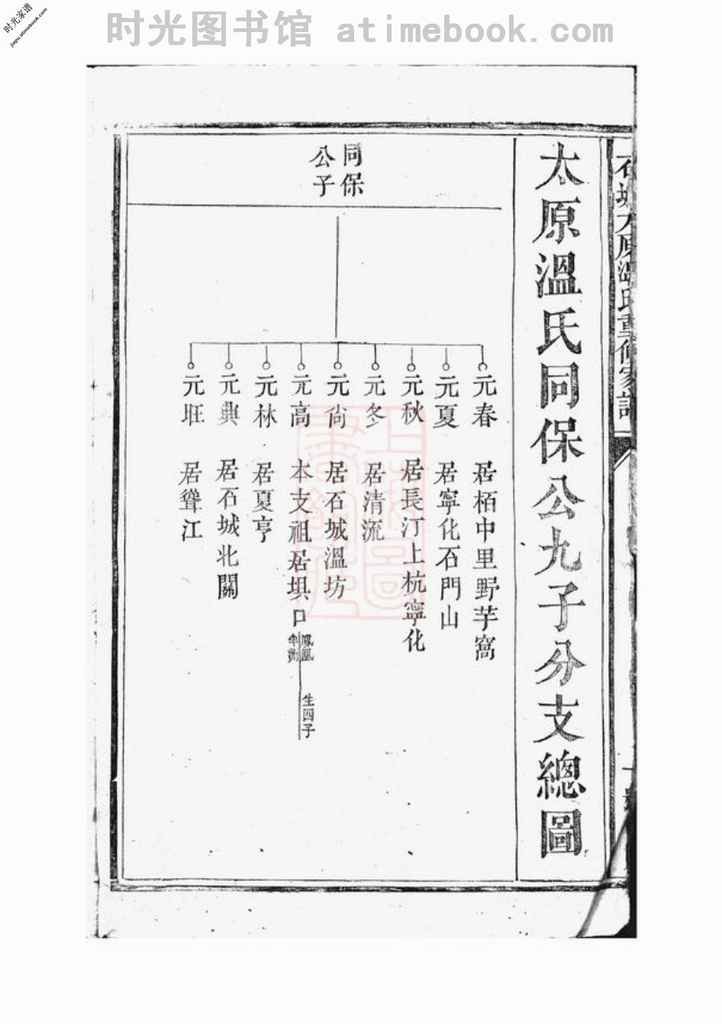 时光图书馆 atimebook.com
时光家谱
jiapu.atimebook.com
石城太原溫氏重修家譜
太原溫氏同保公九子分支總圖
同保
公子
元春 居栢中里野芋窩
元夏 居寧化石門山
元秋 居長汀上杭寧化
元冬 居清流
元尙 居石城溫坊
元高 本支祖居垻口 鳳凰 生四子
元林 居夏亨
元典 居石城北關
元旺 居聳江